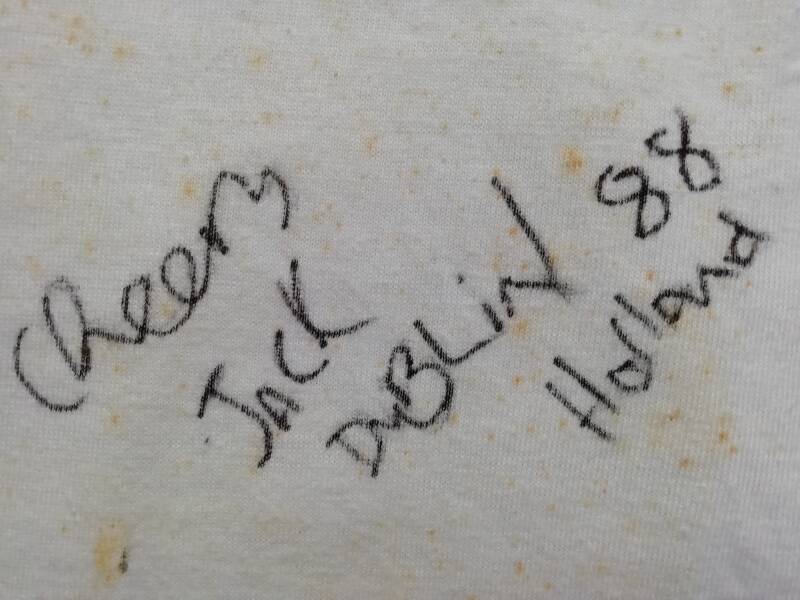 Cheers
JACK
DUBLiN 88
Holland